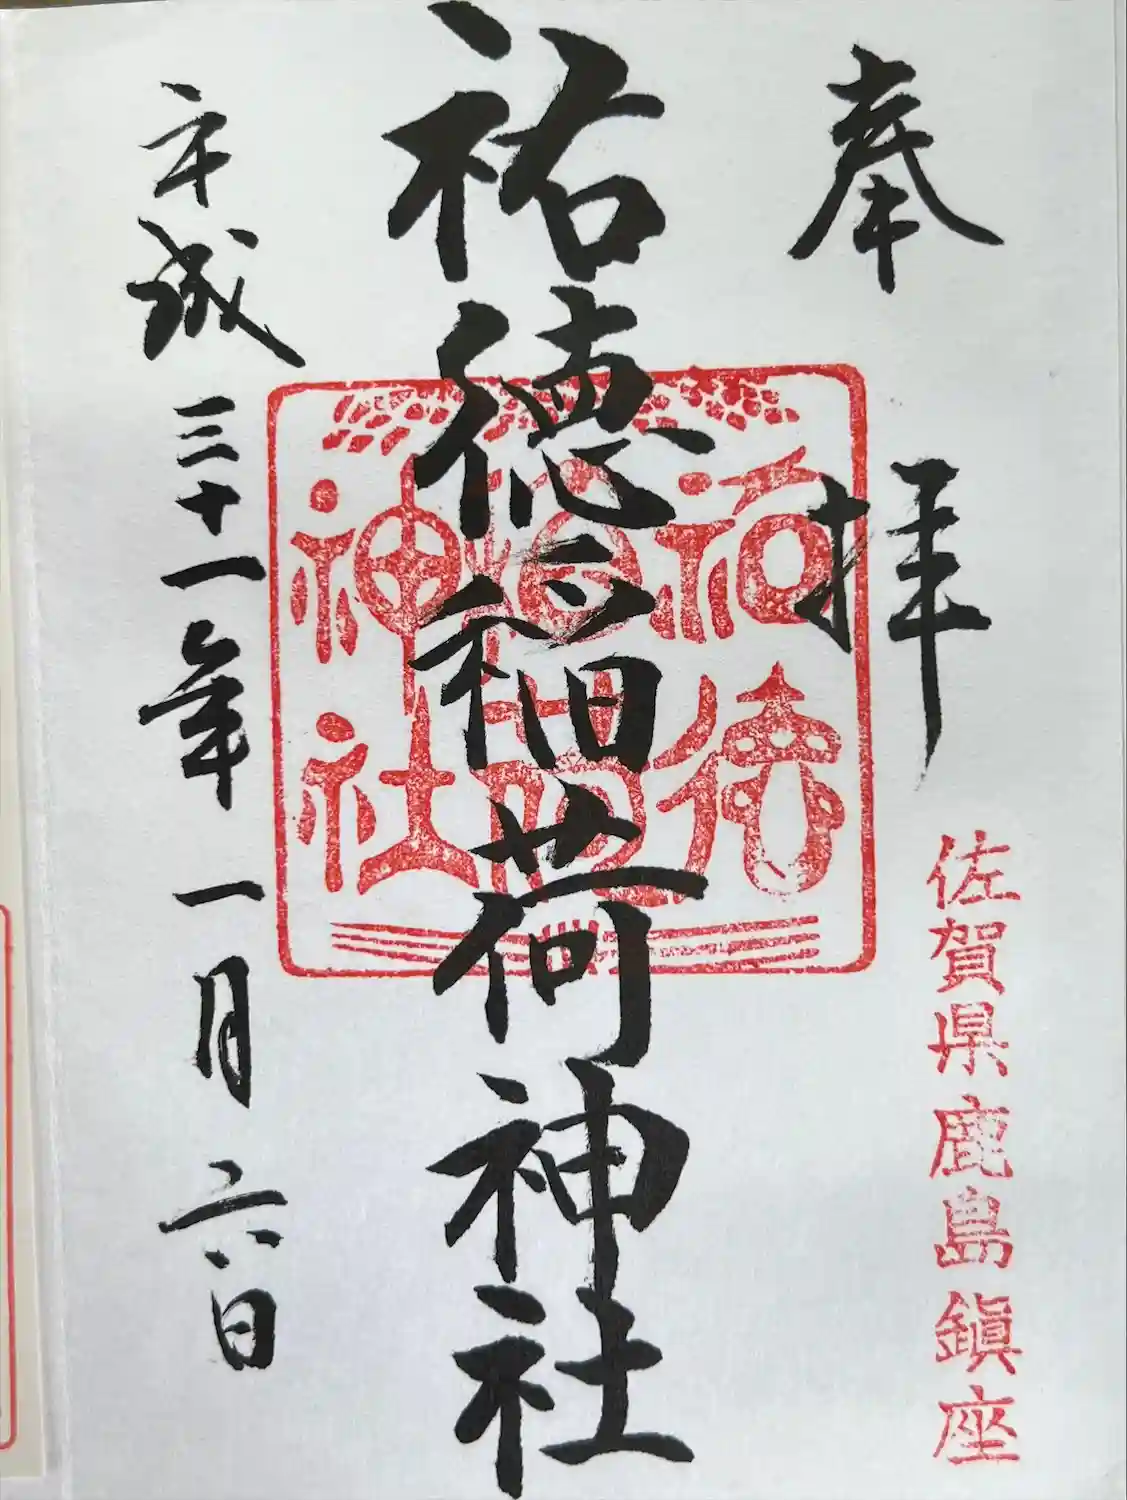 奉拝
佐賀県鹿島鎮座
祐徳稲荷神社
祐徳
稲荷
神社
平成三十一年一月六日